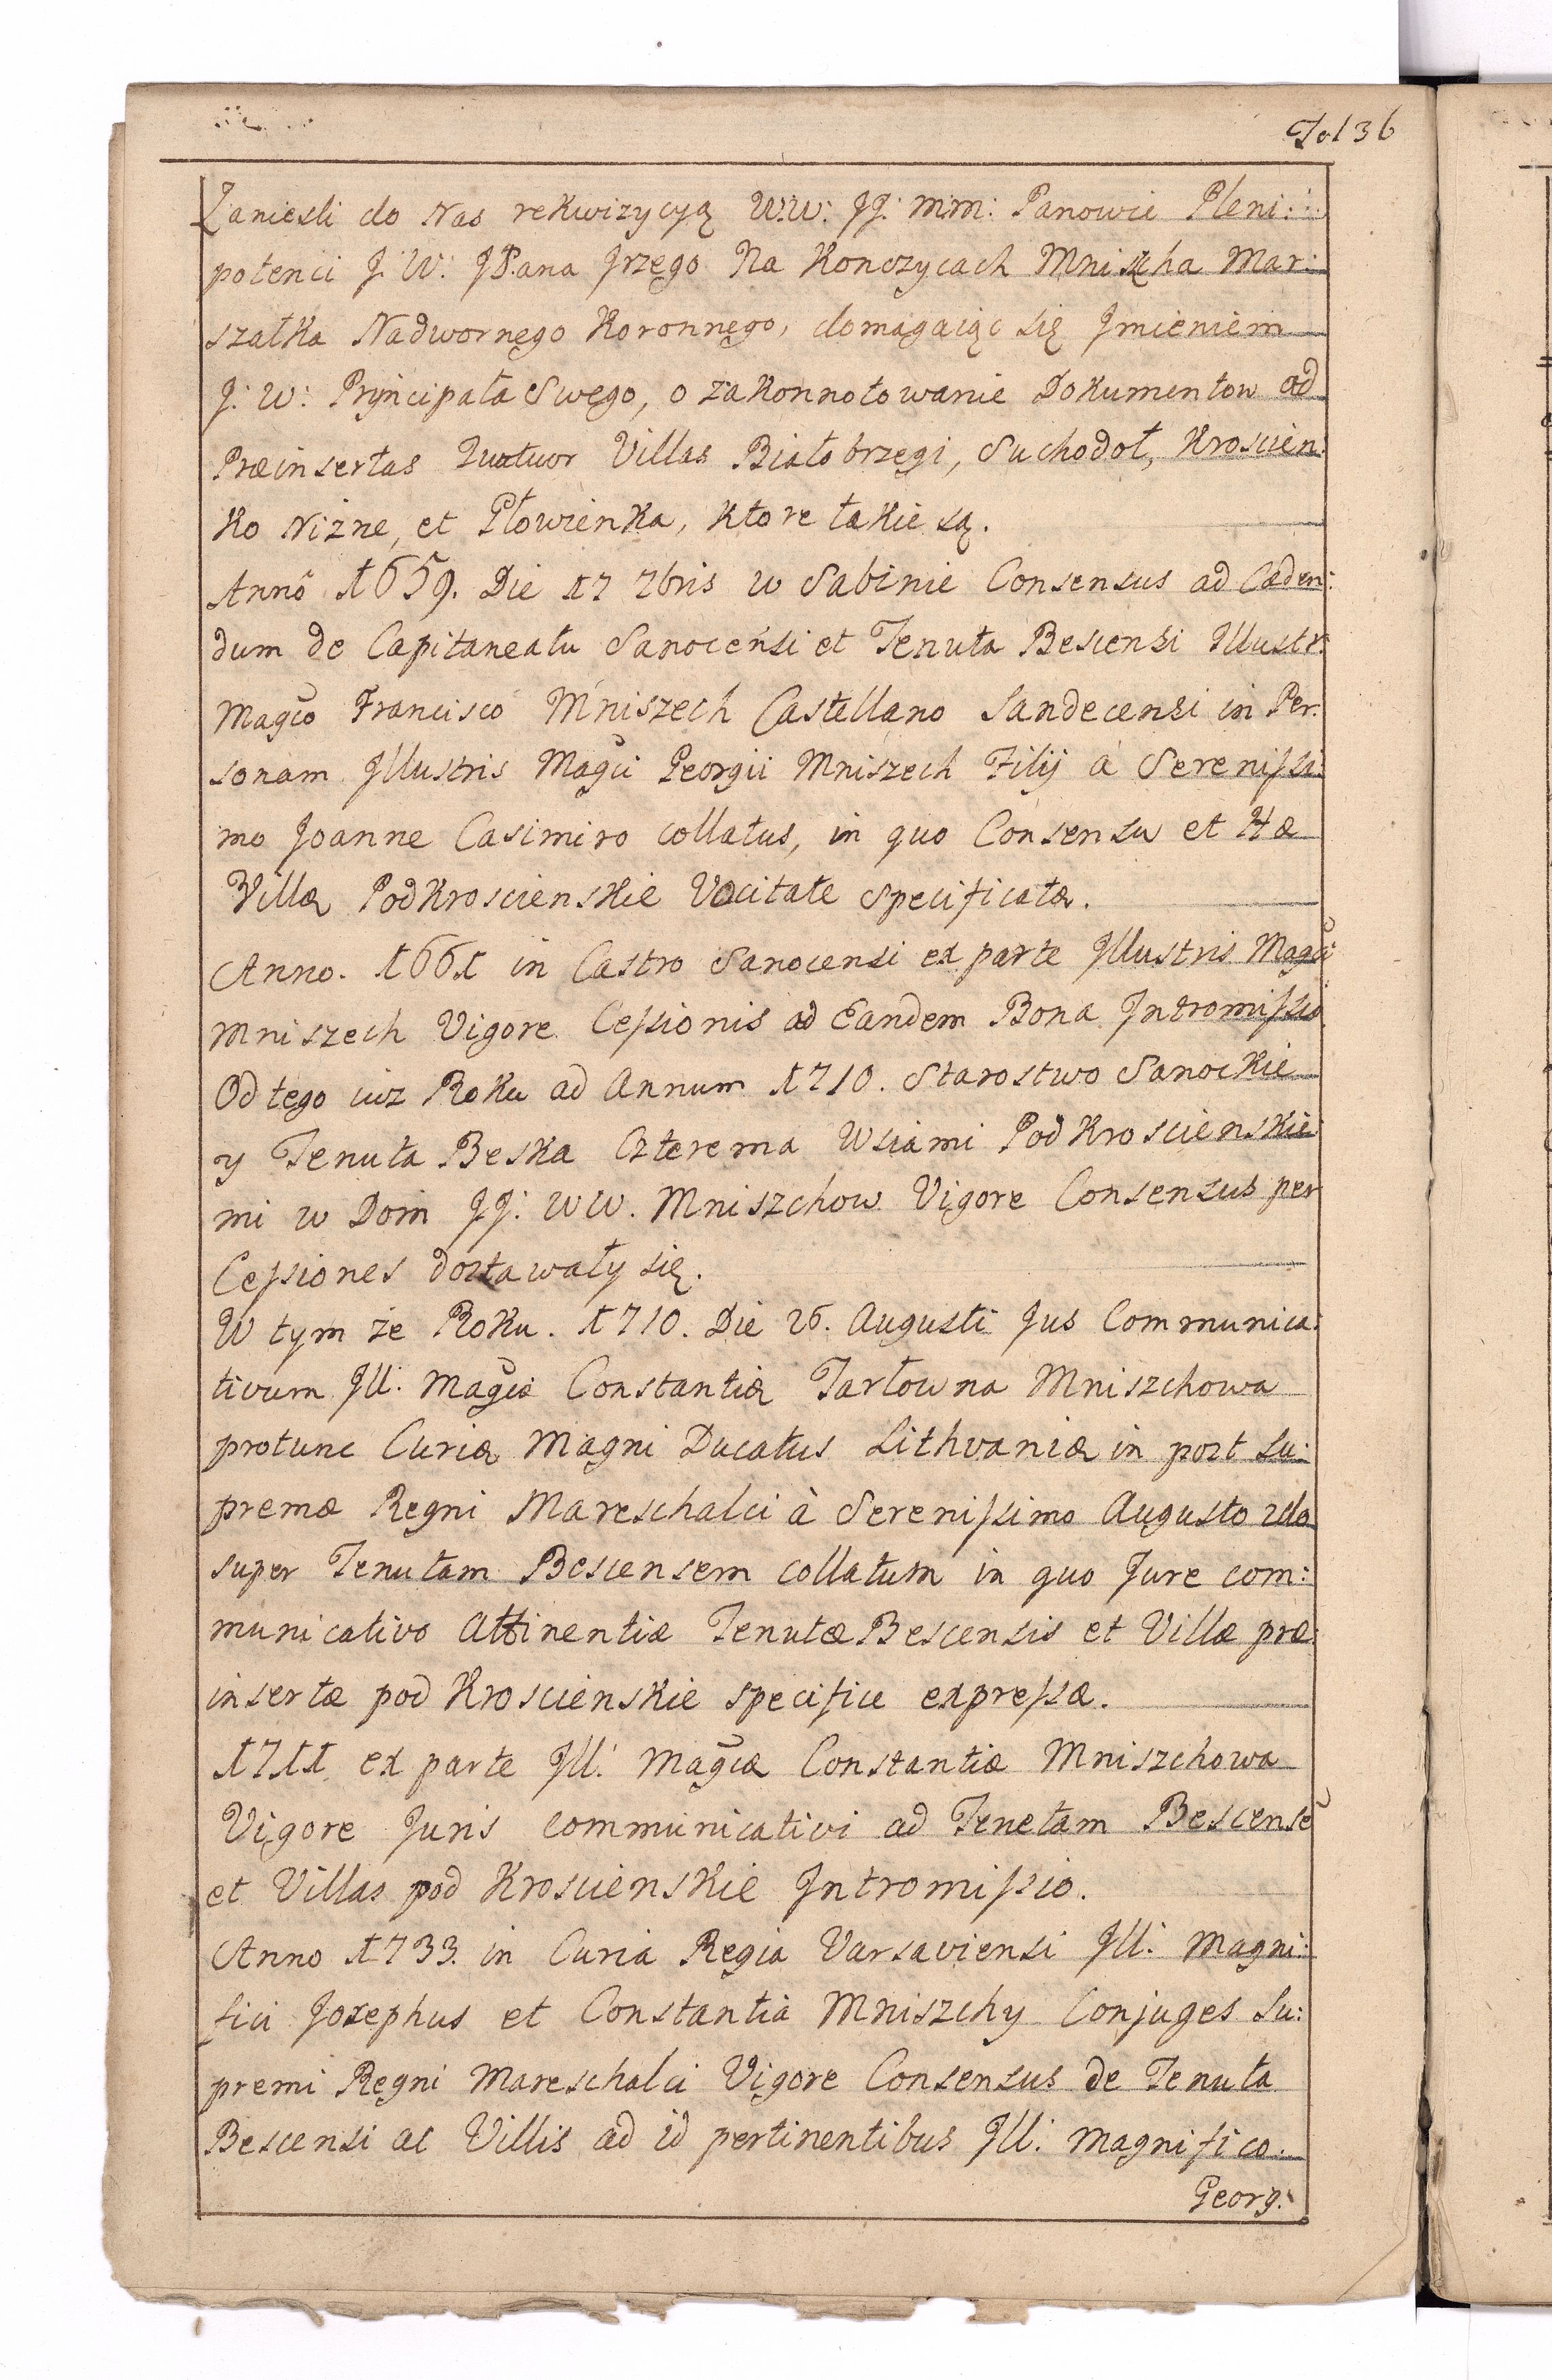 Fol 36
Zaniesli do Nas rekwizycyą W:W: JJ: mm: Panowie Pleni:
potenci J: W: JPana Jrzego Na Konczycach Mniszcha Mar:
szałka Nadwornęgo Koronnęgo, domagaiąc się Jmieniem
J: W: Pryncipała Swego, o zakonnotowanie Dokumentow ad
Præinsertas Quatuor Villas Białobrzegi, Suchodoł, Kroscien:
ko Niżne, et Płowienka, ktore takie są.
Anno 1659. Die 17 7bris w Sabinie Consensus ad Cæden:
dum de Capitaneatu Sanocensi et Tenuta Bescensi Illustr:
Magco Francisco Mniszech Castellano Sandecensi in Per:
sonam Jllustris Magci Georgii Mniszech Filij a Serenissi:
mo Joanne Casimiro collatus, in quo Consensu et Hæ
Villæ Podkroscienskie Vocitatæ Specificatæ.
Anno. 1661 in Castro Sanocensi ex parte Jllustris Magci
Mniszech Vigore Cessionis ad Eandem Bona Jntromissio
Od tego iuz Roku ad Annum 1710. Starostwo Sanockie
y Tenuta Beska Czterema Wsiami Podkroscienskie:
mi w Dom JJ: WW. Mniszchow Vigore Consensus per
Cessiones dostawały się.
W tym że Roku. 1710. Die 26. Augusti Jus Communica:
tivum Jll. Magcæ Constantiæ Tarłowna Mniszchowa
protunc Curiæ Magni Ducatus Lithvaniæ in post Su:
premæ Regni Mareschalci à Serenissimo Augusto 2do
super Tenutam Bescensem collatum in quo Jure com:
municativo Attinentiæ Tenutæ Bescensis et Villæ præ:
insertæ pod Kroscienskie specifice expressæ.
1711 ex parte Jll. Magcæ Constantiæ Mniszchowa
Vigore Juris communicativi ad Tenetam Bescensē
et Villas pod Kroscienskie Jntromissio.
Anno 1733. in Curia Regia Varsaviensi Jll: Magni:
fici Josephus et Constantia Mniszchy Conjuges Su:
premi Regni Mareschalci Vigore Consensus de Tenuta
Bescensi ac Villis ad id pertinentibus Jll. Magnifico
Georg: